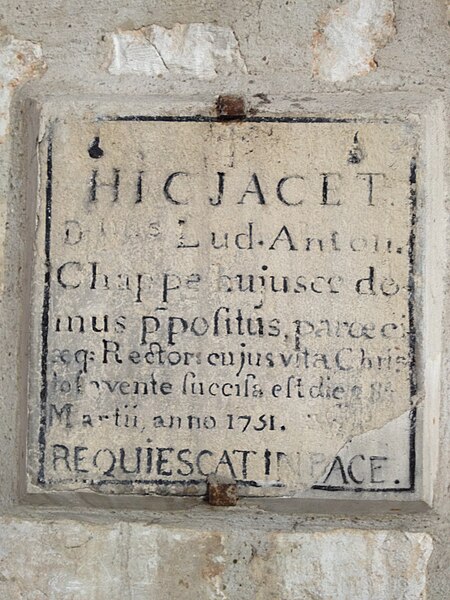 HIC JACET.
Lud. Anton.
Chappe hujusce do-
mus p̄positus, parœci
æq; Rector: cujus vita Chris
vente succisa est die
Martii, anno 1751.
REQUIESCAT IN PACE.